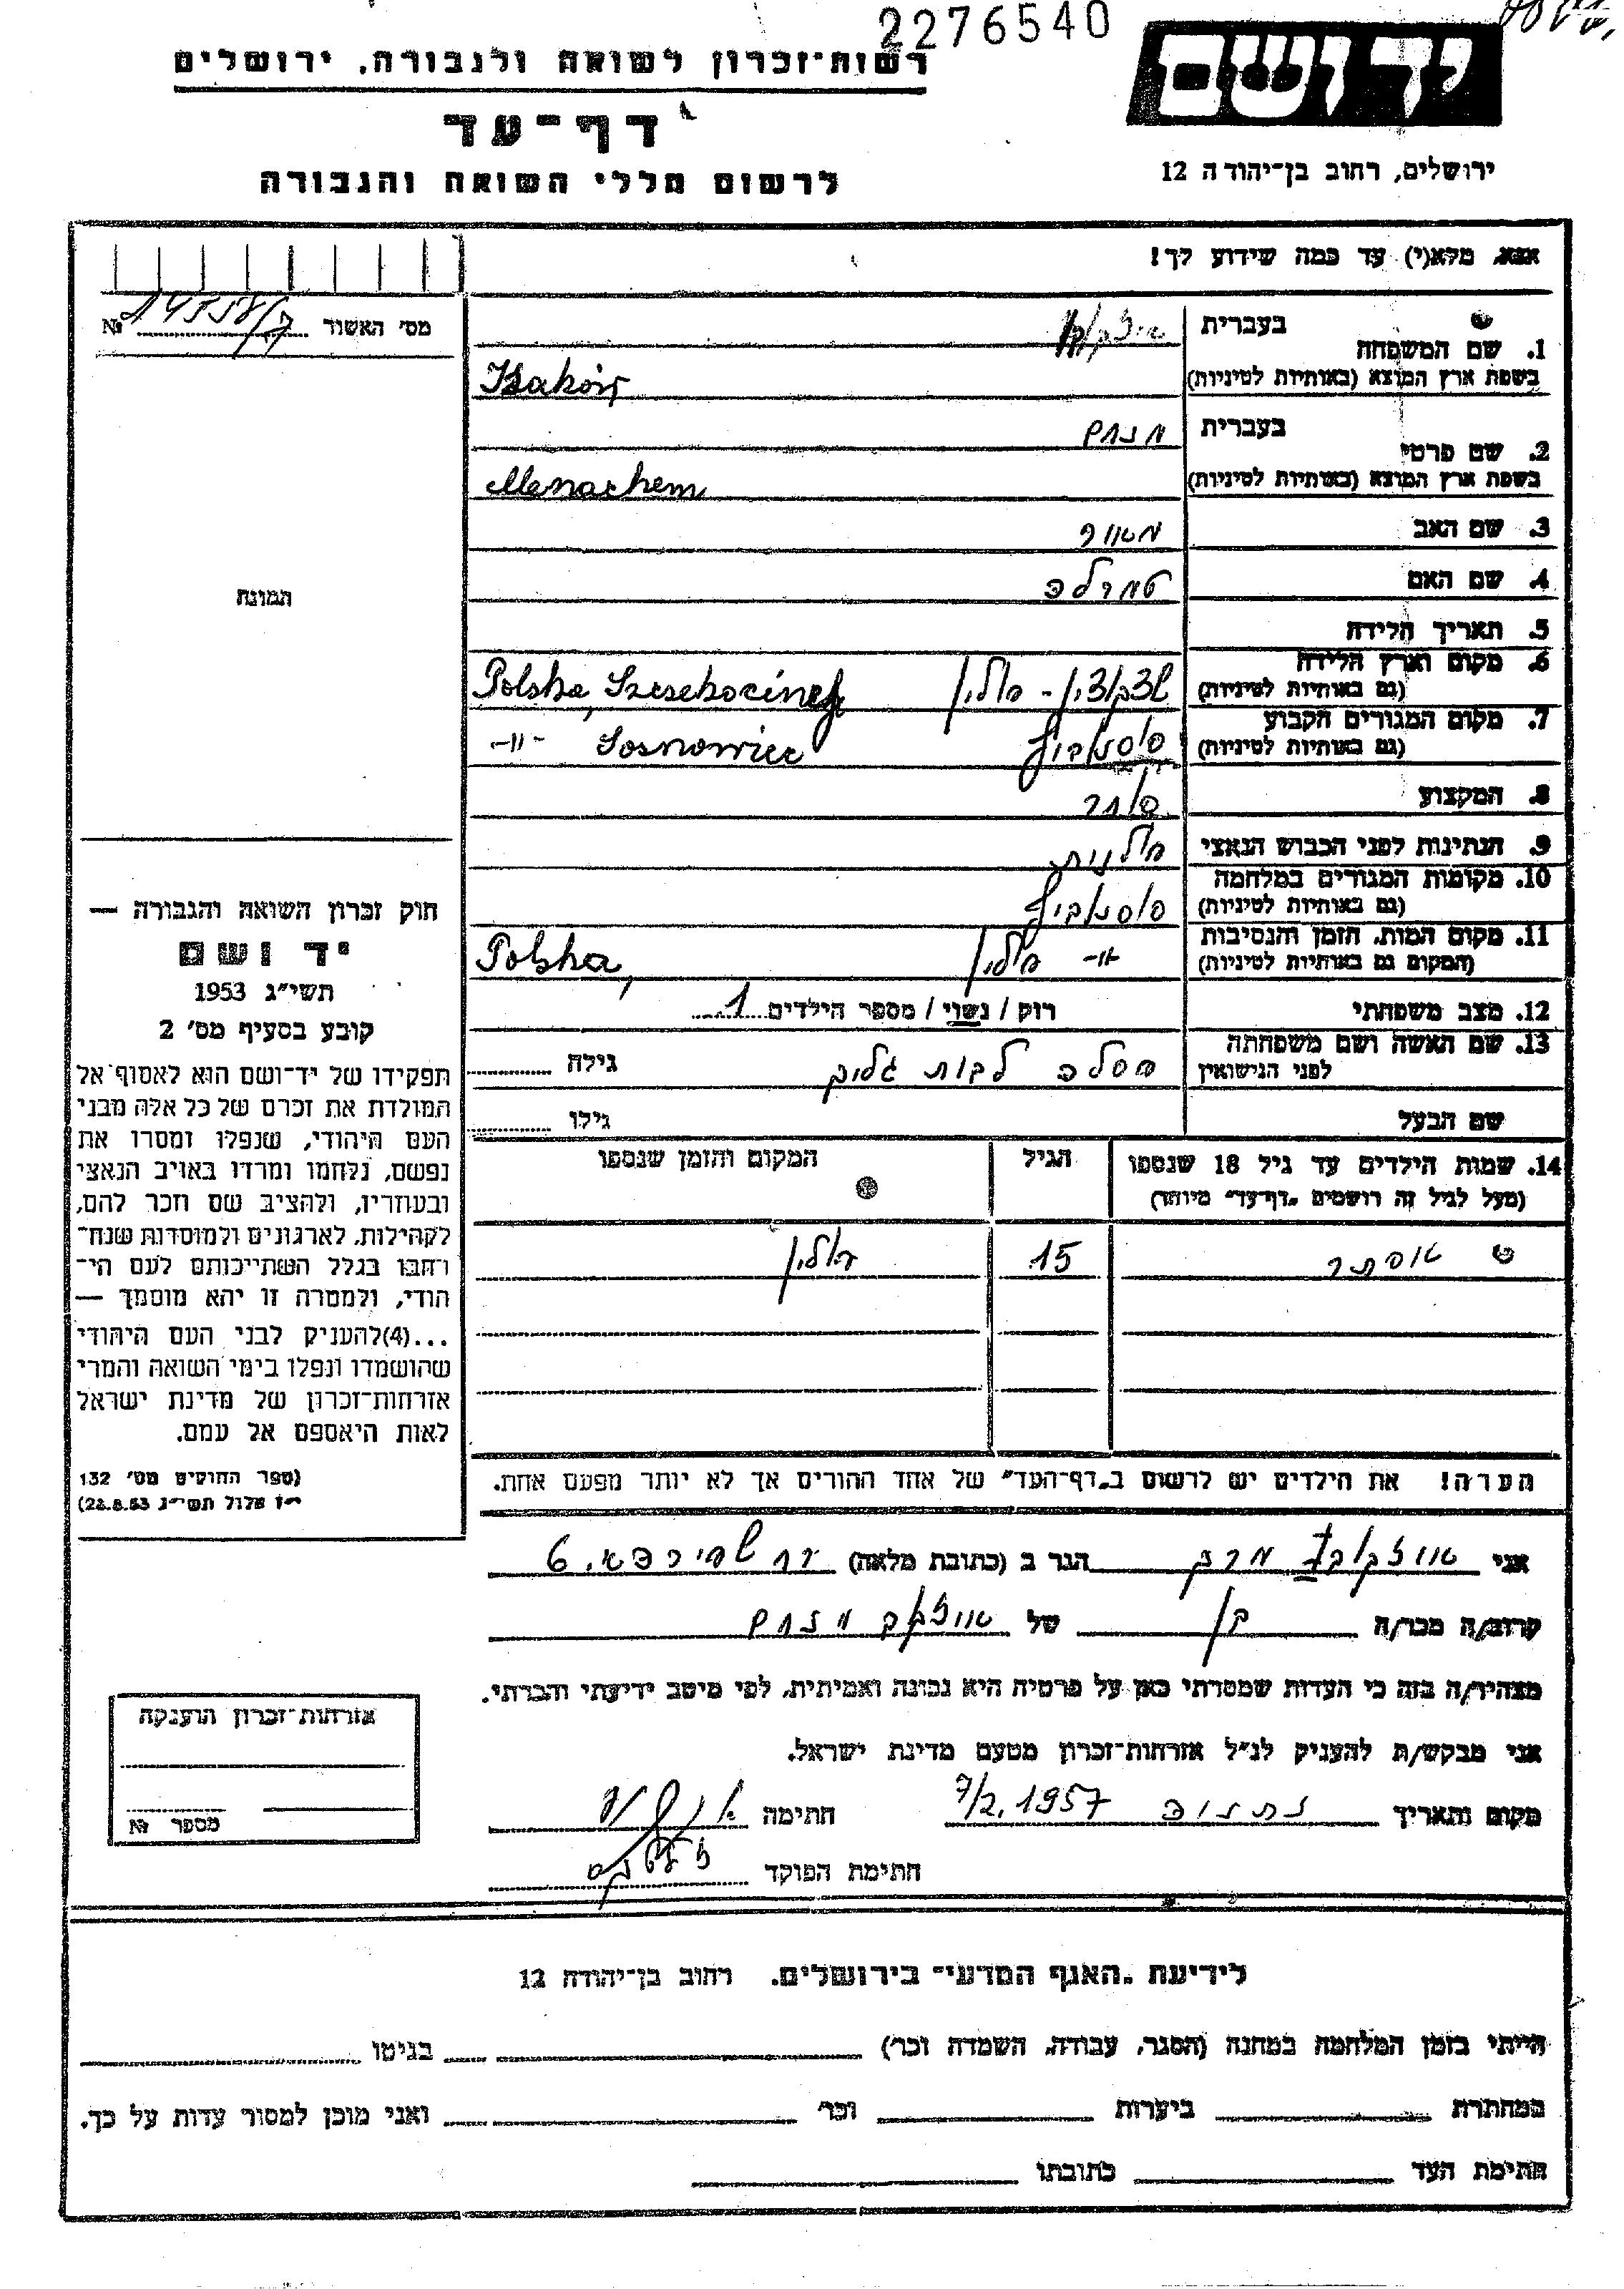 2276540
יד ושם
רשות־זכרון לשואה ולגבורה, ירושלים
דף־עד
ירושלים, רחוב בן־יהודה 12
לרשום חללי השואה והגבורה
אנא, מלא(י) עד כמה שידוע לך!
מס׳ האשור №
1. שם המשפחה בעברית
בשפת ארץ המוצא (באותיות לטיניות)
2. שם פרטי בעברית מנחם
בשפת ארץ המוצא (באותיות לטיניות) Menachem
3. שם האב
4. שם האם
תמונה
5. תאריך הלידה
6. מקום וארץ הלידה
(גם באותיות לטיניות) פולין Polska,
7. מקום המגורים הקבוע
(גם באותיות לטיניות) סוסנוביץ Sosnowiec -"-
8. המקצוע סוחר
9. הנתינות לפני הכבוש הנאצי פולנית
10. מקומות המגורים במלחמה
(גם באותיות לטיניות) סוסנוביץ
11. מקום המות, הזמן והנסיבות
(המקום גם באותיות לטיניות) פולין Polska,
12. מצב משפחתי רוק / נשוי / מספר הילדים 1
13. שם האשה ושם משפחתה
לפני הנישואין לבית גילה
שם הבעל גילו
14. שמות הילדים עד גיל 18 שנספו הגיל המקום והזמן שנספו
(מעל לגיל זה רושמים „דף־עד״ מיוחד)
אסתר 15 פולין
הערה! את הילדים יש לרשום ב„דף־העד״ של אחד ההורים אך לא יותר מפעם אחת.
חוק זכרון השואה והגבורה —
יד ושם
תשי״ג 1953
קובע בסעיף מס׳ 2
תפקידו של יד־ושם הוא לאסוף אל
המולדת את זכרם של כל אלה מבני
העם היהודי, שנפלו ומסרו את
נפשם, נלחמו ומרדו באויב הנאצי
ובעוזריו, ולהציב שם וזכר להם,
לקהילות, לארגונים ולמוסדות שנח־
רבו בגלל השתייכותם לעם הי־
הודי, ולמטרה זו יהא מוסמך —
...(4)להעניק לבני העם היהודי
שהושמדו ונפלו בימי השואה והמרי
אזרחות־זכרון של מדינת ישראל
לאות היאספם אל עמם.
(ספר החוקים מס׳ 132
י״ז אלול תשי״ג 28.8.53)
אני הגר ב (כתובת מלאה)
קרוב/ה מכר/ה בן של מנחם
מצהיר/ה בזה כי העדות שמסרתי כאן על פרטיה היא נכונה ואמיתית, לפי מיטב ידיעתי והכרתי.
אני מבקש/ת להעניק לנ״ל אזרחות־זכרון מטעם מדינת ישראל.
מקום ותאריך נתניה 7/2.1957 חתימה
חתימת הפוקד
אזרחות־זכרון הוענקה
מספר №
לידיעת „האגף המדעי״ בירושלים, רחוב בן־יהודה 12
הייתי בזמן המלחמה במחנה (הסגר, עבודה, השמדה וכו׳) בגיטו
במחתרת ביערות וכו׳ ואני מוכן למסור עדות על כך.
חתימת העד כתובתו